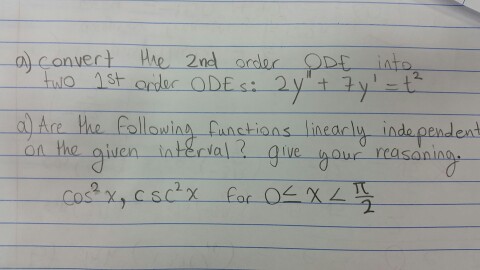 a) convert the 2nd order ODE into
two 1st order ODEs: 2y'' + 7y' = t²
a) Are the following functions linearly independent
on the given interval? give your reasoning.
cos² x, csc² x for 0 ≤ x < π/2